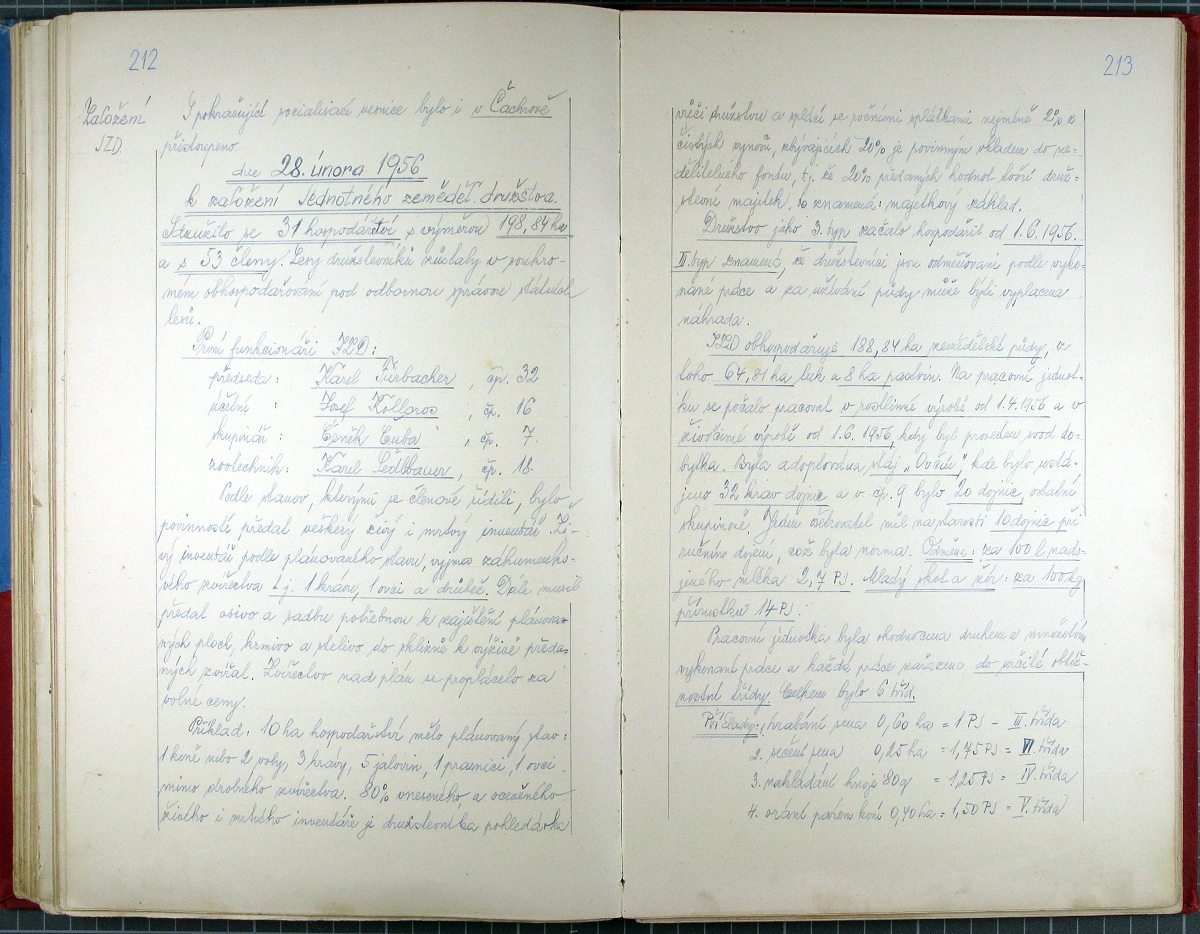 212
Založení
JZD.
S pokračující socialisací vesnice bylo i v Čachrově
přistoupeno
dne 28. února 1956
k založení Jednotného zeměděl. družstva.
Sdružilo se 31 hospodářství s výměrou 198,84 ha
a s 53 členy. Lesy družstevníků zůstaly v soukro-
mém obhospodařování pod odbornou správou státních
lesů.
První funkcionáři JZD:
předseda: Karel Fürbacher, čp. 32
účetní : Josef Kollaros, čp. 16
skupinář: Čeněk Cuba, čp. 7.
zootechnik: Karel Sedlbauer, čp. 18.
Podle stanov, kterými se členové řídili, bylo
povinností předat veškerý živý i mrtvý inventář. Ži-
vý inventář podle plánovaného stavu, vyjma záhumenko-
vého zvířectva t.j. 1 krávu, 1 ovci a drůbež. Dále musil
předat osivo a sadbu potřebnou k zajištění plánova-
ných ploch, krmivo a stelivo do sklizně k výživě předa-
ných zvířat. Zvířectvo nad plán se proplácelo za
volné ceny.
Příklad: 10 ha hospodářství mělo plánovaný stav:
1 koně nebo 2 voly, 3 krávy, 5 jalovin, 1 prasnici, 1 ovci
mimo drobného zvířectva. 80% vneseného a oceněného
živého i mrtvého inventáře je družstevníka pohledávka
213
vůči družstvu a splácí se ročními splátkami nejméně 2% z
čistých výnosů, zbývajících 20% je povinným vkladem do ne-
dělitelného fondu, t.j. že 20% předaných hodnot tvoří druž-
stevní majetek, to znamená: majetkový základ.
Družstvo jako 3. typ začalo hospodařit od 1.6.1956.
III. typ znamená, že družstevníci jsou odměňováni podle vyko-
nané práce a za užívání půdy může býti vyplacena
náhrada.
JZD obhospodařuje 188,84 ha zemědělské půdy, z
toho 64,81 ha luk a 8 ha pastvin. Na pracovní jednot-
ku se počalo pracovat v rostlinné výrobě od 1.4.1956 a v
živočišné výrobě od 1.6.1956, kdy byl proveden svod do-
bytka. Byla adoptována stáj „Ovčín", kde bylo ustá-
jeno 32 krav dojnic a v čp. 9 bylo 20 dojnic, ostatní
skupinově. Jeden ošetřovatel měl na starosti 10 dojnic při
ručním dojení, což byla norma. Odměna: za 100 l nado-
jeného mléka 2,7 PJ. Mladý skot a žír: za 100 kg
přírustku 14 PJ.
Pracovní jednotka byla ohodnocena druhem a množstvím
vykonané práce a každá práce zařazena do určité obtíž-
nostní třídy. Celkem bylo 6 tříd.
Příklady: hrabání sena 0,60 ha = 1 PJ - III. třída
2. sečení sena 0,25 ha = 1,75 PJ = VI. třída
3. nakládání hnoje 80 q = 1,25 PJ = IV. třída
4. orání párem koní 0,40 ha = 1,50 PJ = V. třída